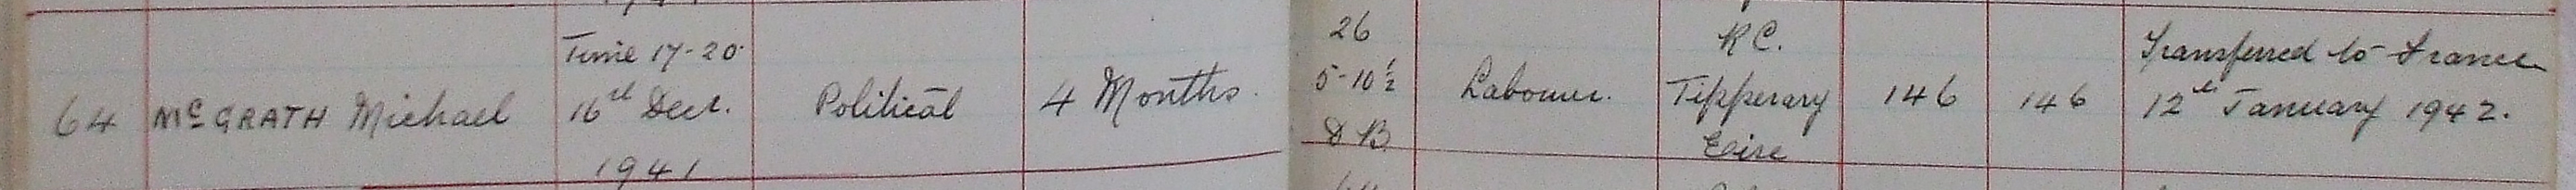 64
McGRATH Michael
Time 17-20
16th Dect.
1941
Political
4 Months.
26
5-10½
D B
Labourer.
R C.
Tipperary
Eoire
146
146
Transferred to France
12th January 1942.